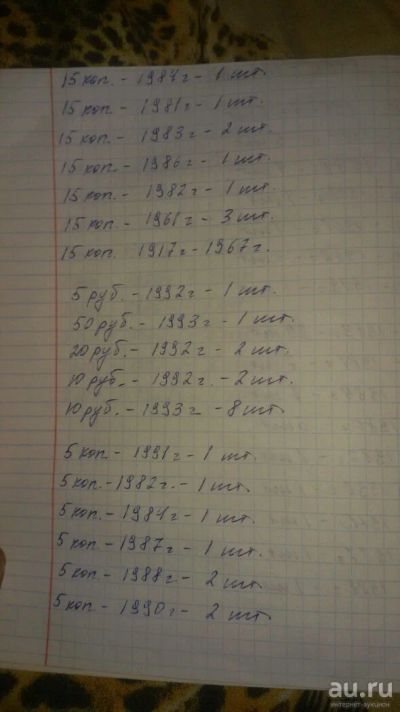 15 коп. - 1984 г - 1 шт.
15 коп. - 1981 г - 1 шт.
15 коп. - 1983 г - 2 шт.
15 коп. - 1986 г - 1 шт.
15 коп. - 1982 г - 1 шт.
15 коп. - 1961 г - 3 шт.
15 коп. 1917 г - 1967 г.
5 руб. - 1992 г - 1 шт.
50 руб. - 1993 г - 1 шт.
20 руб. - 1992 г - 2 шт.
10 руб. - 1992 г. - 2 шт.
10 руб. - 1993 г - 8 шт.
5 коп. - 1991 г - 1 шт.
5 коп. - 1982 г. - 1 шт.
5 коп. - 1984 г - 1 шт.
5 коп - 1987 г - 1 шт.
5 коп - 1988 г - 2 шт.
5 коп - 1990 г - 2 шт.
au.ru
интернет-аукцион